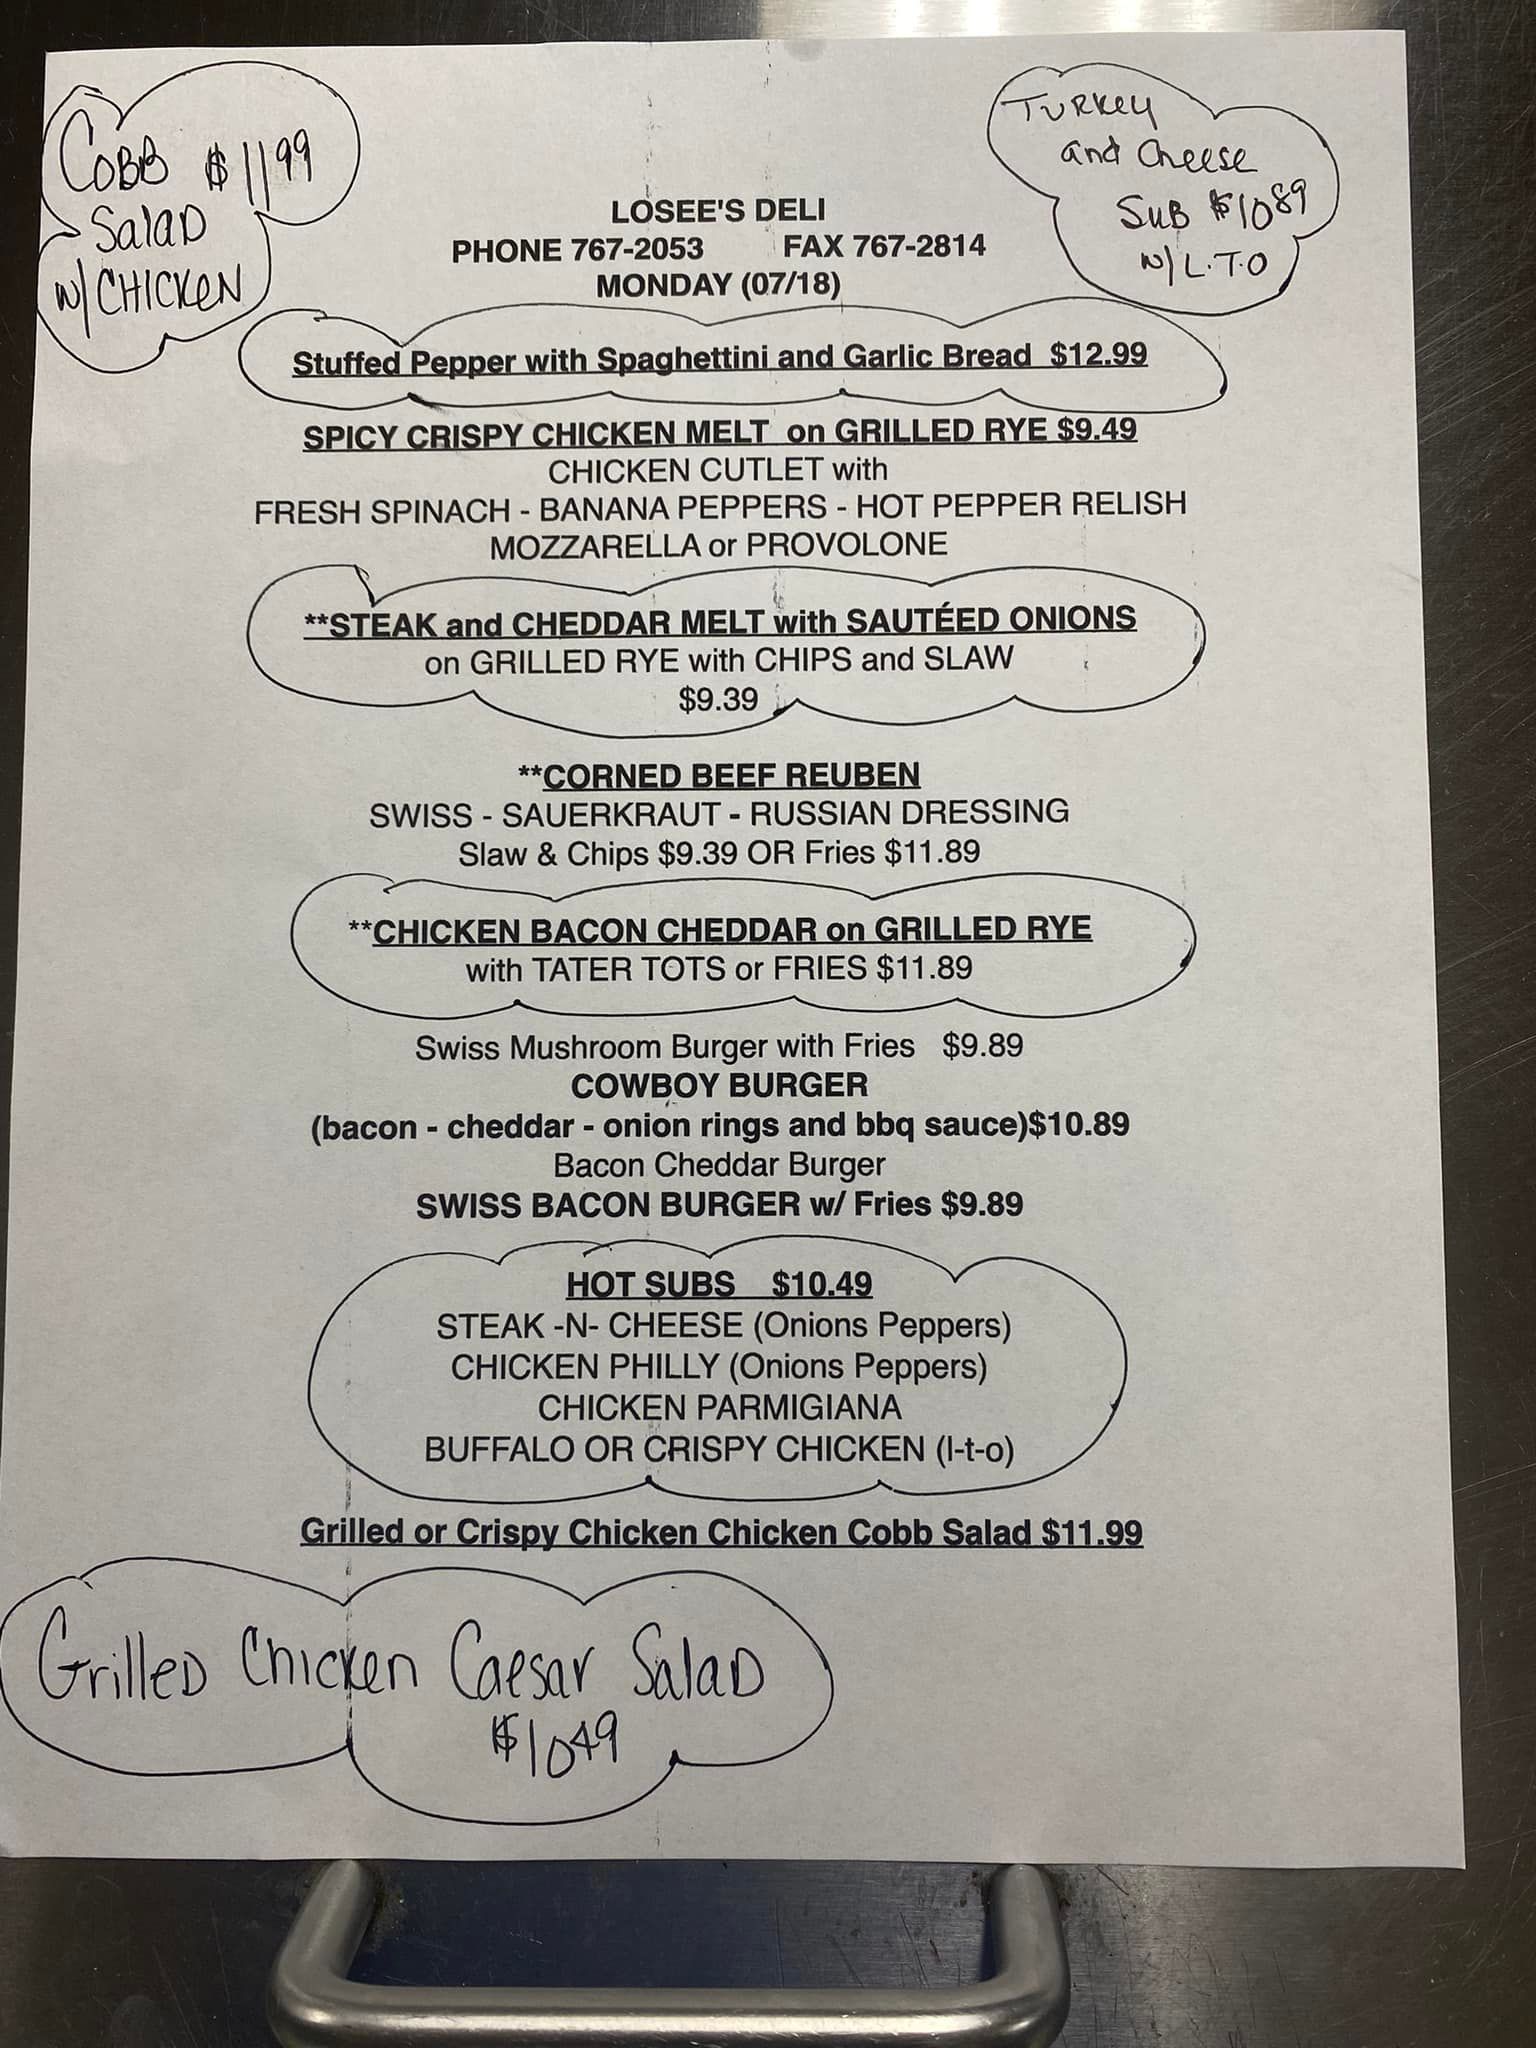 COBB $11.99
Salad
w/ CHICKEN
Turkey
and Cheese
Sub $10.89
w/ L.T.O
LOSEE'S DELI
PHONE 767-2053 FAX 767-2814
MONDAY (07/18)
Stuffed Pepper with Spaghettini and Garlic Bread $12.99
SPICY CRISPY CHICKEN MELT on GRILLED RYE $9.49
CHICKEN CUTLET with
FRESH SPINACH - BANANA PEPPERS - HOT PEPPER RELISH
MOZZARELLA or PROVOLONE
**STEAK and CHEDDAR MELT with SAUTÉED ONIONS
on GRILLED RYE with CHIPS and SLAW
$9.39
**CORNED BEEF REUBEN
SWISS - SAUERKRAUT - RUSSIAN DRESSING
Slaw & Chips $9.39 OR Fries $11.89
**CHICKEN BACON CHEDDAR on GRILLED RYE
with TATER TOTS or FRIES $11.89
Swiss Mushroom Burger with Fries $9.89
COWBOY BURGER
(bacon - cheddar - onion rings and bbq sauce)$10.89
Bacon Cheddar Burger
SWISS BACON BURGER w/ Fries $9.89
HOT SUBS $10.49
STEAK -N- CHEESE (Onions Peppers)
CHICKEN PHILLY (Onions Peppers)
CHICKEN PARMIGIANA
BUFFALO OR CRISPY CHICKEN (l-t-o)
Grilled or Crispy Chicken Chicken Cobb Salad $11.99
Grilled Chicken Caesar Salad
$10.49